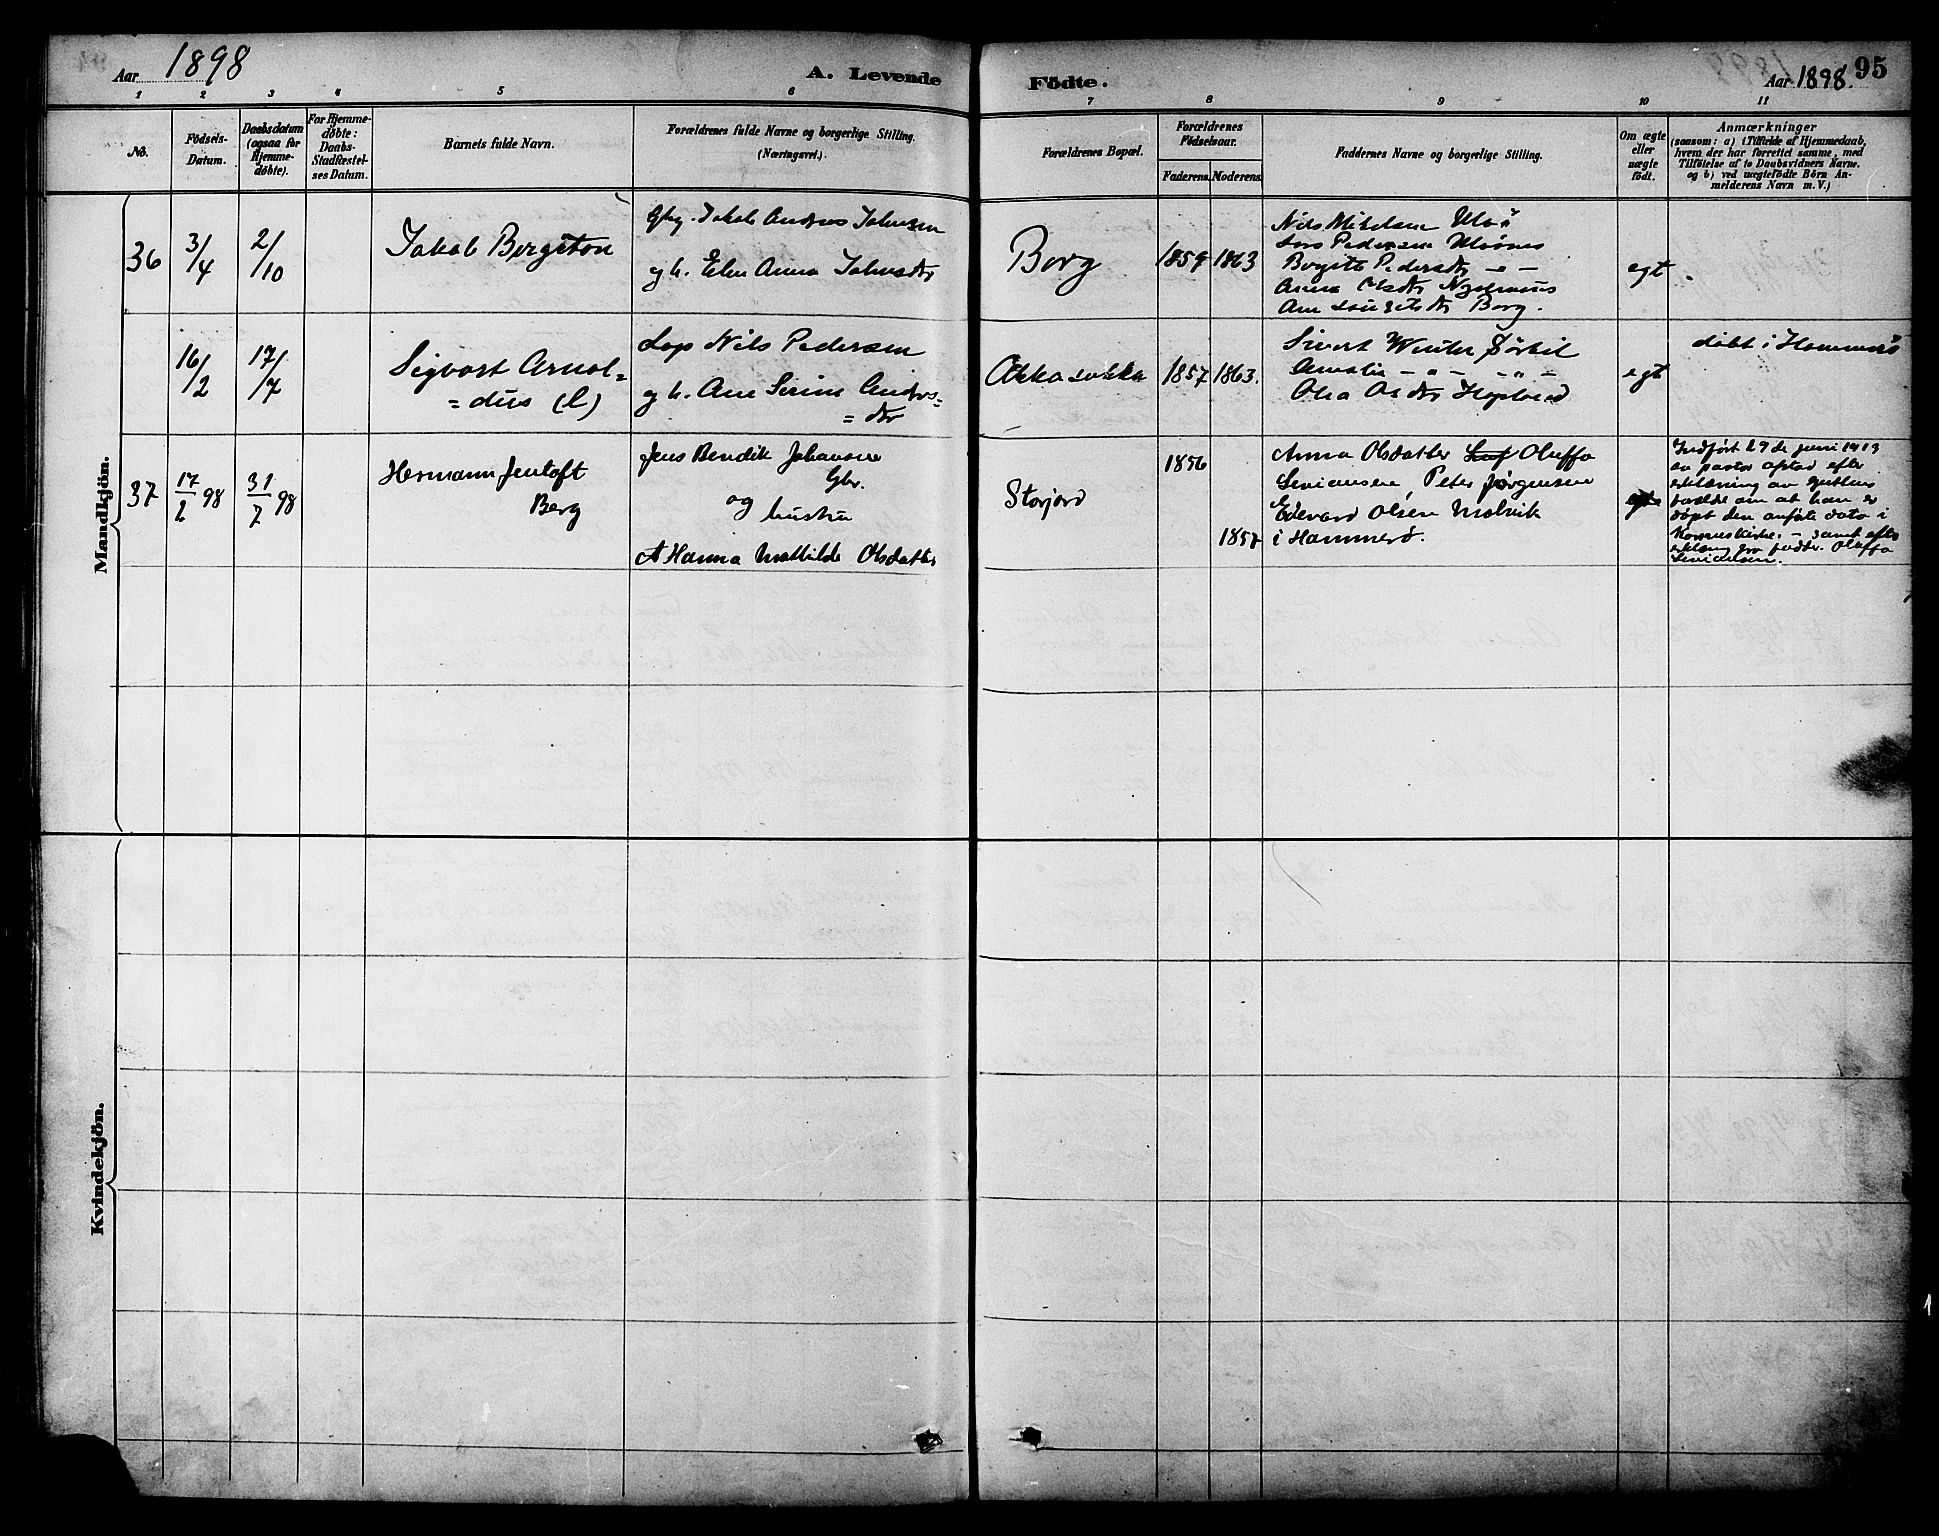 Aar 1898
A. Levende
Födte.
Aar 1898.
95
1 2 3 4 5 6 7 8 9 10 11
No.
Födsels-
Datum.
Daabsdatum
(ogsaa for
Hjemme-
döbte).
For Hjemme-
döbte:
Daabs-
Stadfæstel-
ses Datum.
Barnets fulde Navn.
Forældrenes fulde Navne og borgerlige Stilling.
(Næringsvei).
Forældrenes Bopæl.
Forældrenes
Födselsaar.
Faderens. Moderens.
Faddernes Navne og borgerlige Stilling.
Om ægte
eller
uægte
födt.
Anmærkninger
(saasom: a) i Tilfælde af Hjemmedaab,
hvem der har forrettet samme, med
Tilföielse af to Daabsvidners Navne.
og b) ved uægtefödte Börn An-
melderens Navn m. V.)
Mandkjön.
36
3/4
2/10
Jakob Bergeton
Gbg. Jakob Andreas Johnsen
og h. Elen Anna Johnsdtr
Borg
1859 1863
Nils Mikelsen
Lars Pedersen
Bergite Pedersdtr - " -
Anna Olsdtr
Ane Borg.
egt
16/2
17/7
Sigvart Arnol=
=dus (l)
Lap Nils Pedersen
og h. Ane Serine Andrs=
=dtr
1857 1863.
Sivert Winter Sørkil
Amalie - " - - " -
Olea
egt
døbt i Hammerö
37
17/2 98
31/7 98
Hermann Jentoft
Berg
Jens Bendik Johansen
Gbr.
og
hustru
Hanna Mathilde Olsdatter
Storjord
1856
1857
Anna Olsdatter Oluffa
Sevaldsen, Peter Jørgensen
Edevard Olsen Molvik
i Hammerø.
egte
Indført 29de juni 1919
av pastor efter
erklæring av
forældre om at han er
døpt den anførte dato i
kirke. - samt efter
erklæring fra fadder Oluffa
Kvindekjön.